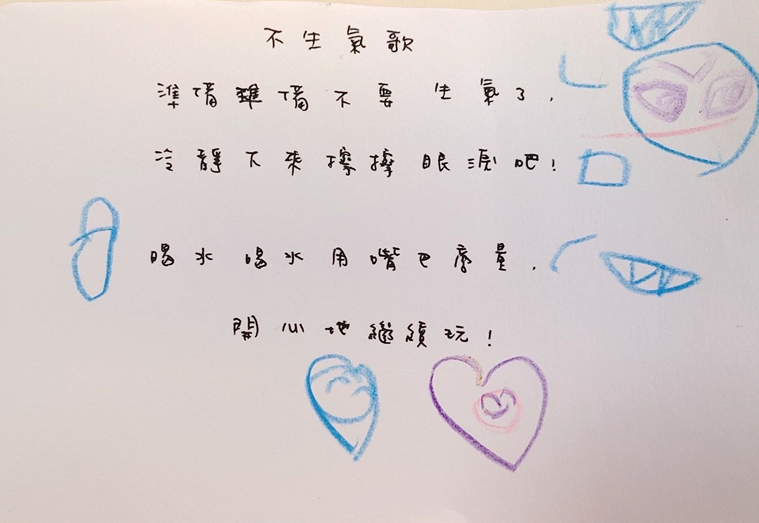 不生氣歌
準備準備不要生氣了，
冷靜下來擦擦眼淚吧！
喝水喝水用嘴巴度量，
開心地繼續玩！